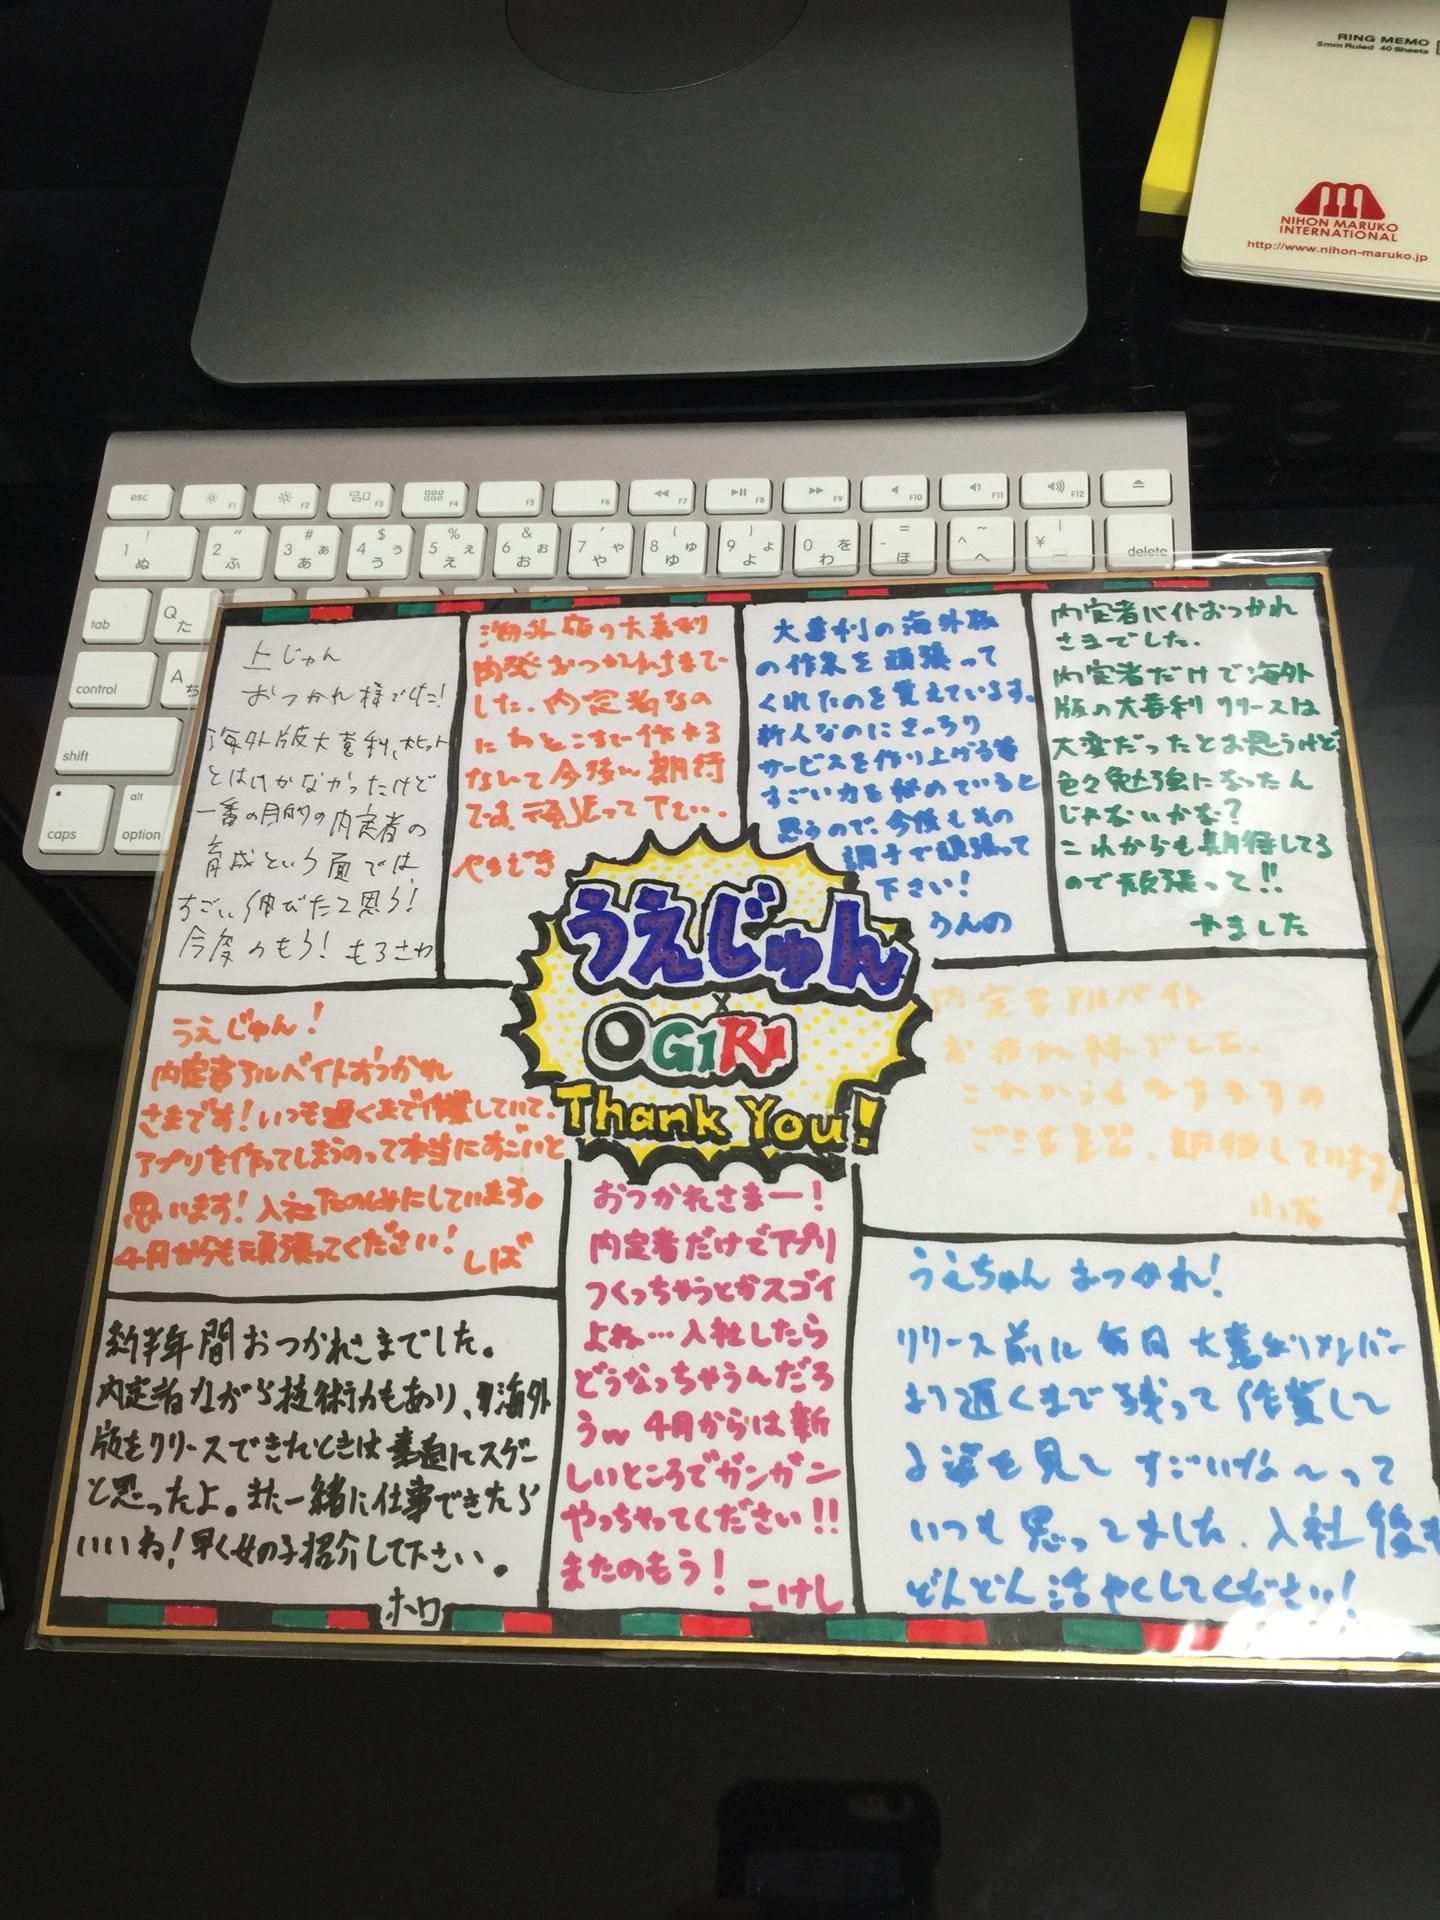 RING MEMO
5mm Ruled 40 Sheets
NIHON MARUKO
INTERNATIONAL
http://www.nihon-maruko.jp
esc
F1
F2
F3
F4
F5
F6
F7
F8
F9
F10
F11
F12
! 1 ぬ
" 2 ふ
# 3 ぁ あ
$ 4 ぅ う
% 5 ぇ え
& 6 ぉ お
' 7 ゃ や
( 8 ゅ ゆ
) 9 ょ よ
0 を わ
= - ほ
~ ^ へ
| ¥ ー
delete
tab
Q た
control
A ち
shift
caps
alt
option
上じゅん
おつかれ様でした!
海外版大喜利、大ヒット
とはいかなかったけど
一番の目的の内定者の
育成という面では
すごい伸びたと思う!
今度のもう! もろさわ
海外版の大喜利
開発おつかれさまで
した。内定者なの
にあそこまで作れる
なんて今後に期待
です。頑張って下さい。
やまざき
大喜利の海外版
の作業を頑張って
くれたのを覚えています。
新人なのにさっくり
サービスを作り上げる等
すごい力を秘めていると
思うので、今後もその
調子で頑張って
下さい!
うんの
内定者バイトおつかれ
さまでした。
内定者だけで海外
版の大喜利 リリースは
大変だったとお思うけど
色々勉強になったん
じゃないかな?
これからも期待してる
ので頑張って!!
やました
うえじゅん
×
OGIRI
Thank You!
うえじゅん!
内定者アルバイトおつかれ
さまです!いつも遅くまで作業していて、
アプリを作ってしまうのって本当にすごいと
思います!入社たのしみにしています。
4月からも頑張ってください! しば
内定者アルバイト
お疲れ様でした。
これからもますますの
ご活躍、期待しています!
小石
約半年間おつかれさまでした。
内定者ながら技術力もあり、海外
版をリリースできたときは素直にスゲー
と思ったよ。また一緒に仕事できたら
いいね!早く女の子紹介して下さい。
ホロ
おつかれさまー!
内定者だけでアプリ
つくっちゃうとかスゴイ
よね…入社したら
どうなっちゃうんだろ
うw 4月からは新
しいところでガンガン
やっちゃってください!!
またのもう! こけし
うえちゅん おつかれ!
リリース前に 毎日 大喜利メンバー
より遅くまで残って作業して
る姿を見て すごいな〜って
いつも思ってました。入社後も
どんどん活やくしてください!